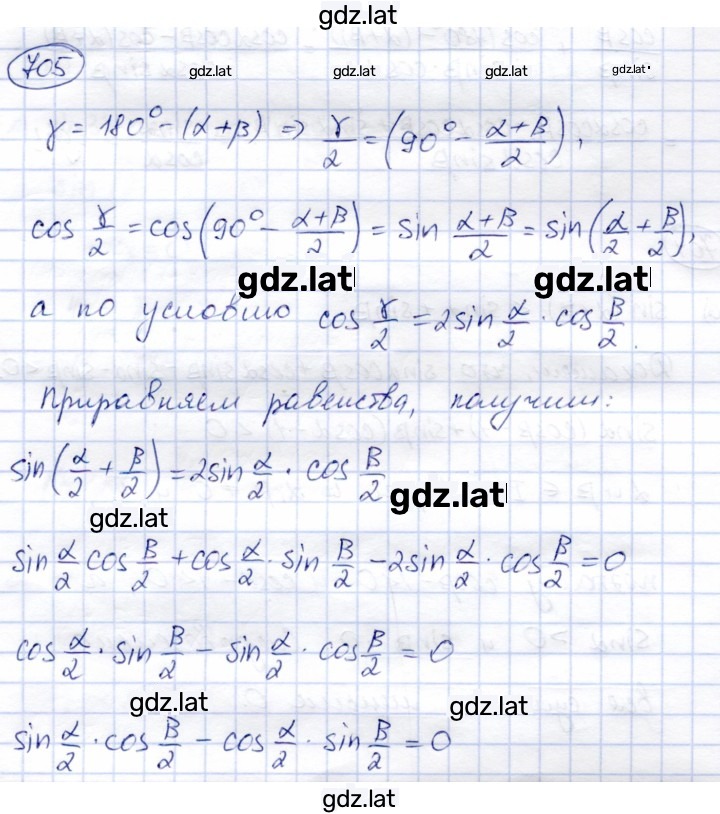 gdz.lat
705
gdz.lat gdz.lat gdz.lat gdz.lat
γ = 180° - (α+β) => γ/2 = (90° - (α+β)/2),
cos γ/2 = cos(90° - (α+β)/2) = sin (α+β)/2 = sin(α/2 + β/2),
gdz.lat gdz.lat
а по условию cos γ/2 = 2sin α/2 · cos β/2.
Приравняем равенства, получим:
sin(α/2 + β/2) = 2sin α/2 · cos β/2
gdz.lat
gdz.lat
sin α/2 cos β/2 + cos α/2 · sin β/2 - 2sin α/2 · cos β/2 = 0
cos α/2 · sin β/2 - sin α/2 · cos β/2 = 0
gdz.lat gdz.lat
sin α/2 · cos β/2 - cos α/2 · sin β/2 = 0
gdz.lat